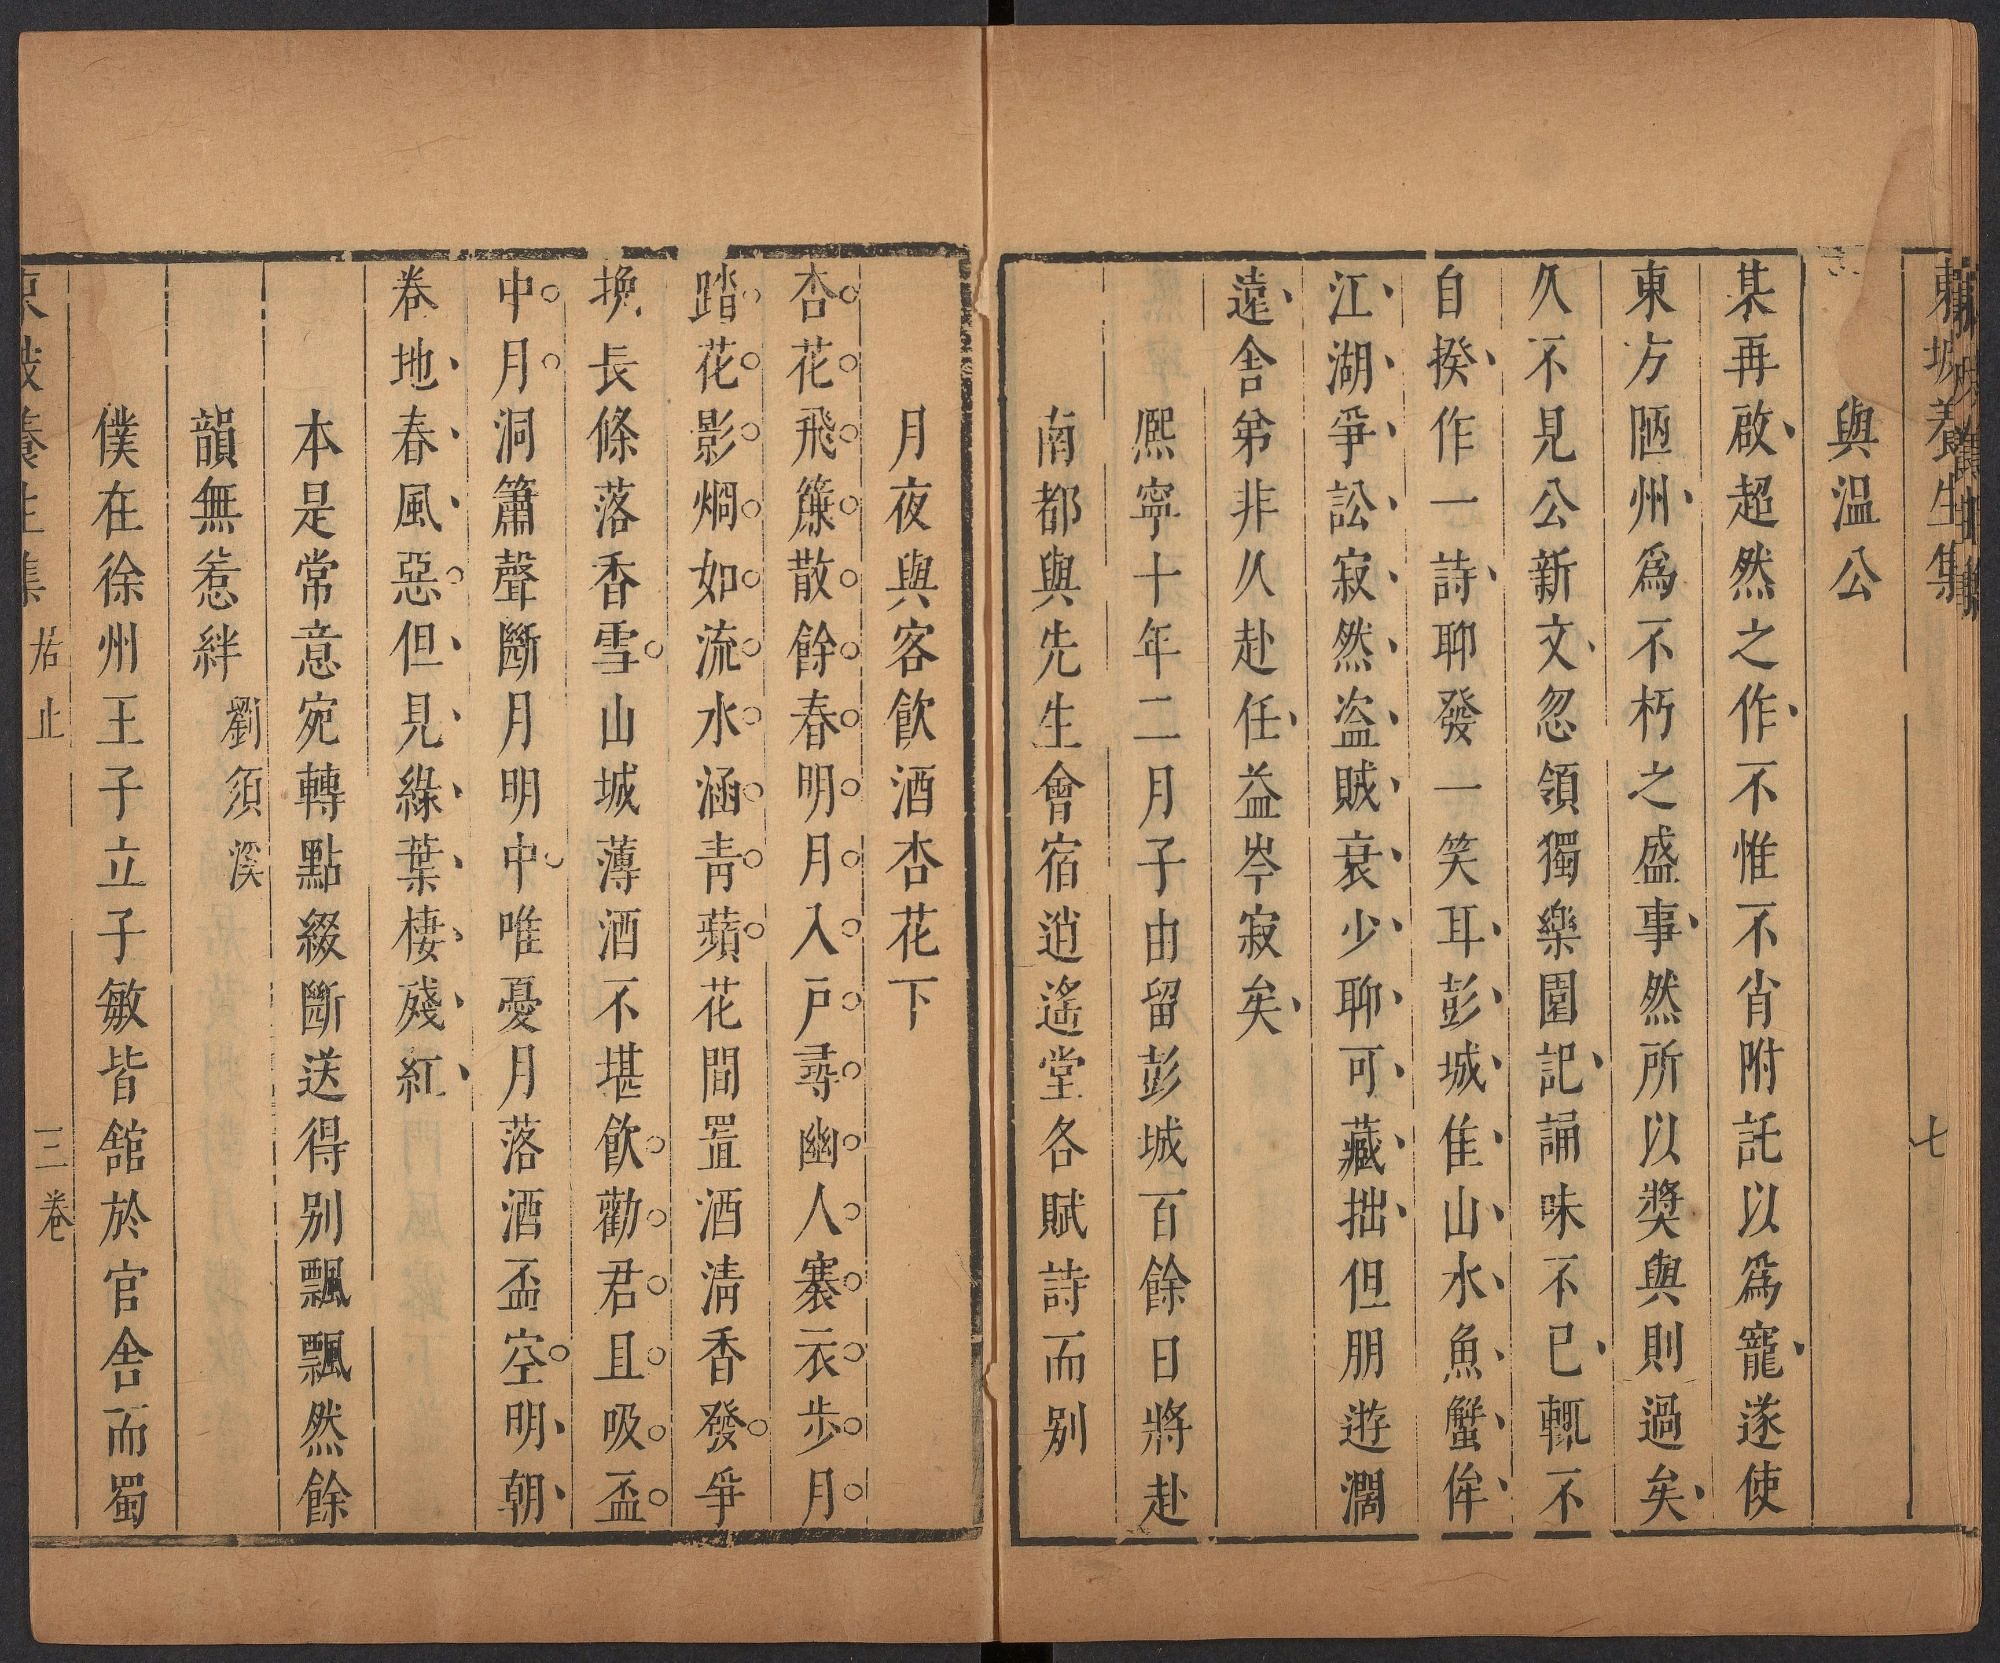 東坡養生集
七
與溫公
某再啟超然之作不惟不肖附託以爲寵遂使
東方陋州爲不朽之盛事然所以獎與則過矣
久不見公新文忽領獨樂園記誦味不已輒不
自揆作一詩聊發一笑耳彭城佳山水魚蟹侔
江湖爭訟寂然盜賊衰少聊可藏拙但朋遊濶
遠舍弟非久赴任益岑寂矣
熈寧十年二月子由留彭城百餘日將赴
南都與先生會宿逍遙堂各賦詩而别
月夜與客飲酒杏花下
杏花飛簾散餘春明月入戶尋幽人褰衣步月
踏花影烱如流水涵青蘋花間置酒清香發爭
挽長條落香雪山城薄酒不堪飲勸君且吸盃
中月洞簫聲斷月明中唯憂月落酒盃空明朝
卷地春風惡但見綠葉棲殘紅
本是常意宛轉點綴斷送得别飄飄然餘
韻無惹絆劉須溪
僕在徐州王子立子敏皆舘於官舍而蜀
東坡養生集 游止 三卷